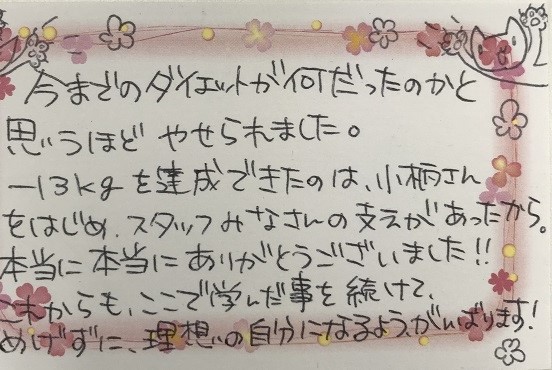 今までのダイエットが何だったのかと
思うほど やせられました。
-13kgを達成できたのは、小柄さん
をはじめ、スタッフみなさんの支えがあったから。
本当に本当にありがとうございました!!
これからも、ここで学んだ事を続けて、
めげずに、理想の自分になるよう、がんばります!